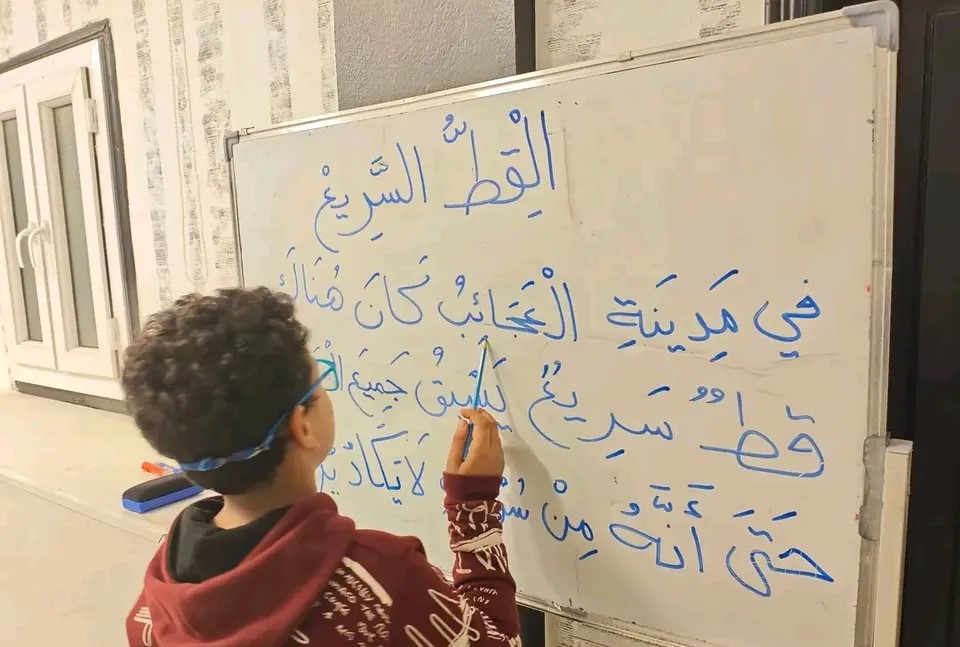 الْقِطُّ السَّرِيعْ
في مَدِينَةِ الْعَجَائِبُ كَانَ هُنَاكَ
قَطٌ سَرِيعٌ يَسْبِقُ جَمِيعَ
حَتَّى أَنَّهُ مِنْ لَا يَكَادُ